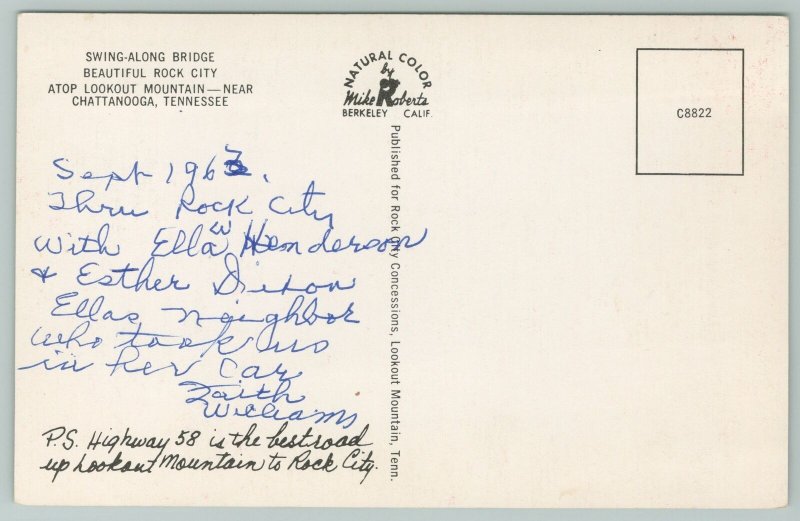 SWING-ALONG BRIDGE
BEAUTIFUL ROCK CITY
ATOP LOOKOUT MOUNTAIN — NEAR
CHATTANOOGA, TENNESSEE
NATURAL COLOR
by
Mike Roberts
BERKELEY CALIF.
C8822
Published for Rock City Concessions, Lookout Mountain, Tenn.
Sept 1967.
Thru Rock City
With Ella W Henderson
& Esther Dixon
Ellas neighbor
who took us
in her car
Faith
Williams
P.S. Highway 58 is the best road
up Lookout Mountain to Rock City.